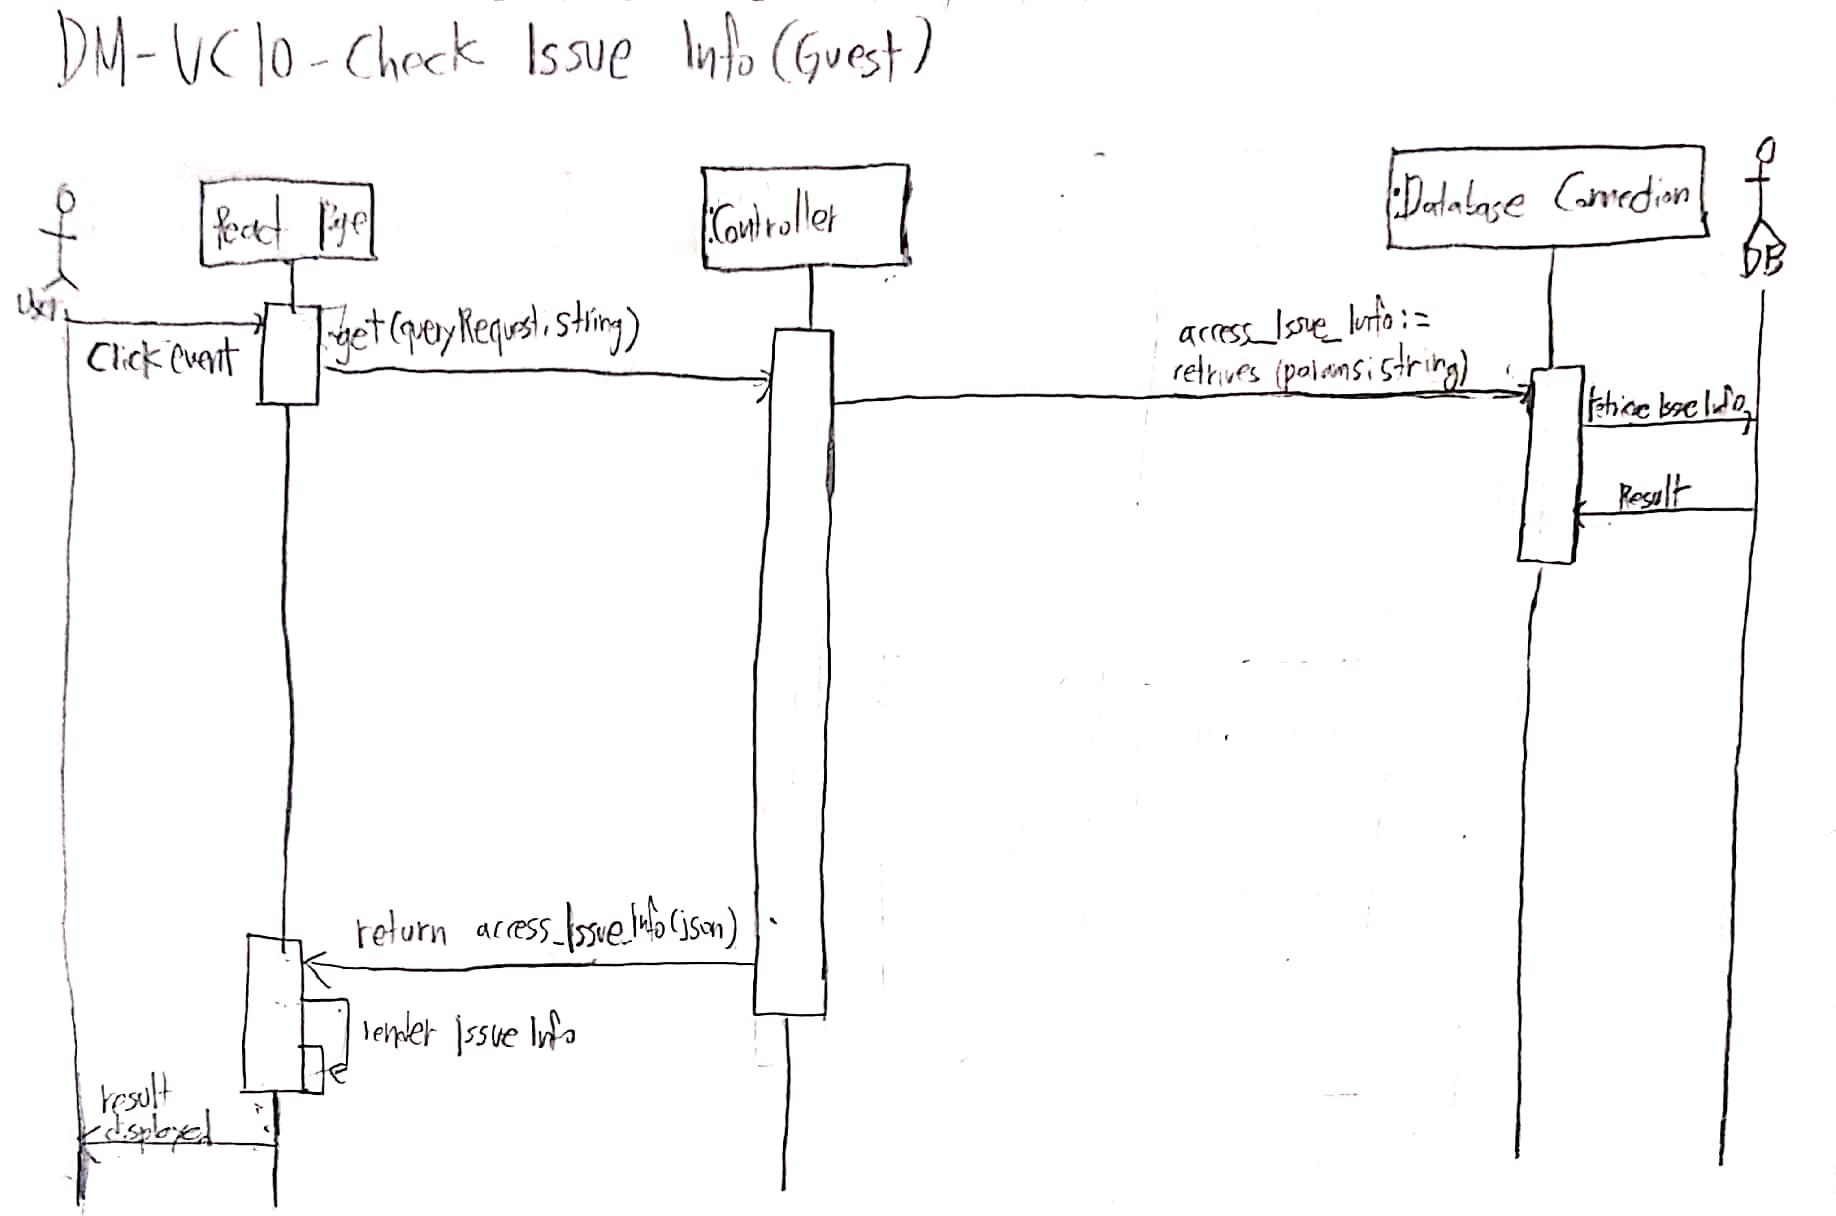 DM-UC10-Check Issue Info (Guest)
React Page
:Controller
:Database Connection
User
DB
Click Event
get(queryRequest:string)
access_Issue_Info:=
retrives (params:string)
retrive Issue Info
Result
return access_Issue_Info(json)
render Issue Info
result
displayed